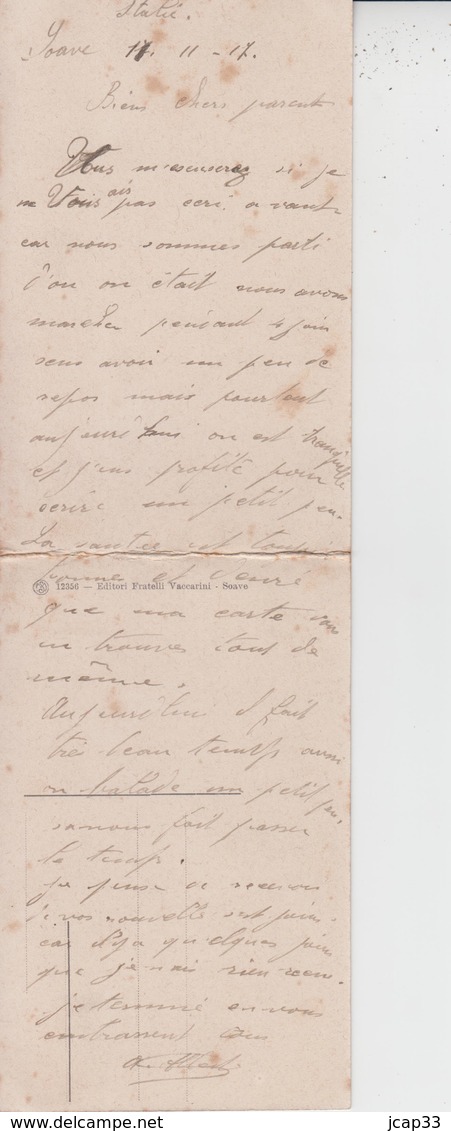 Italie.
Soave 17. 11 - 17.
Biens chers parents
Vous m'escuserez si je
ne Vous ais pas ecri avant
car nous sommes parti
d'ou on était nous avons
marcher pendant 4 join
sens avoir un peu de
repos mais pourtant
aujourd'hui on est tranquille
et j'ens profite pour
écrire un petit peu.
La santée est toujour
bonne et désire
12356 — Editori Fratelli Vaccarini - Soave
que ma carte vous
en trouves tous de
même.
Aujourd'hui il fait
très beau temps aussi
on balade un petit peu,
sa nous fait passer
le temps.
Je pense de recevoir
de vos nouvelle ses jours
car il y a quelques jours
que je n'ais rien recu
je termine en vous
embrassent tous
Albert
jcap33